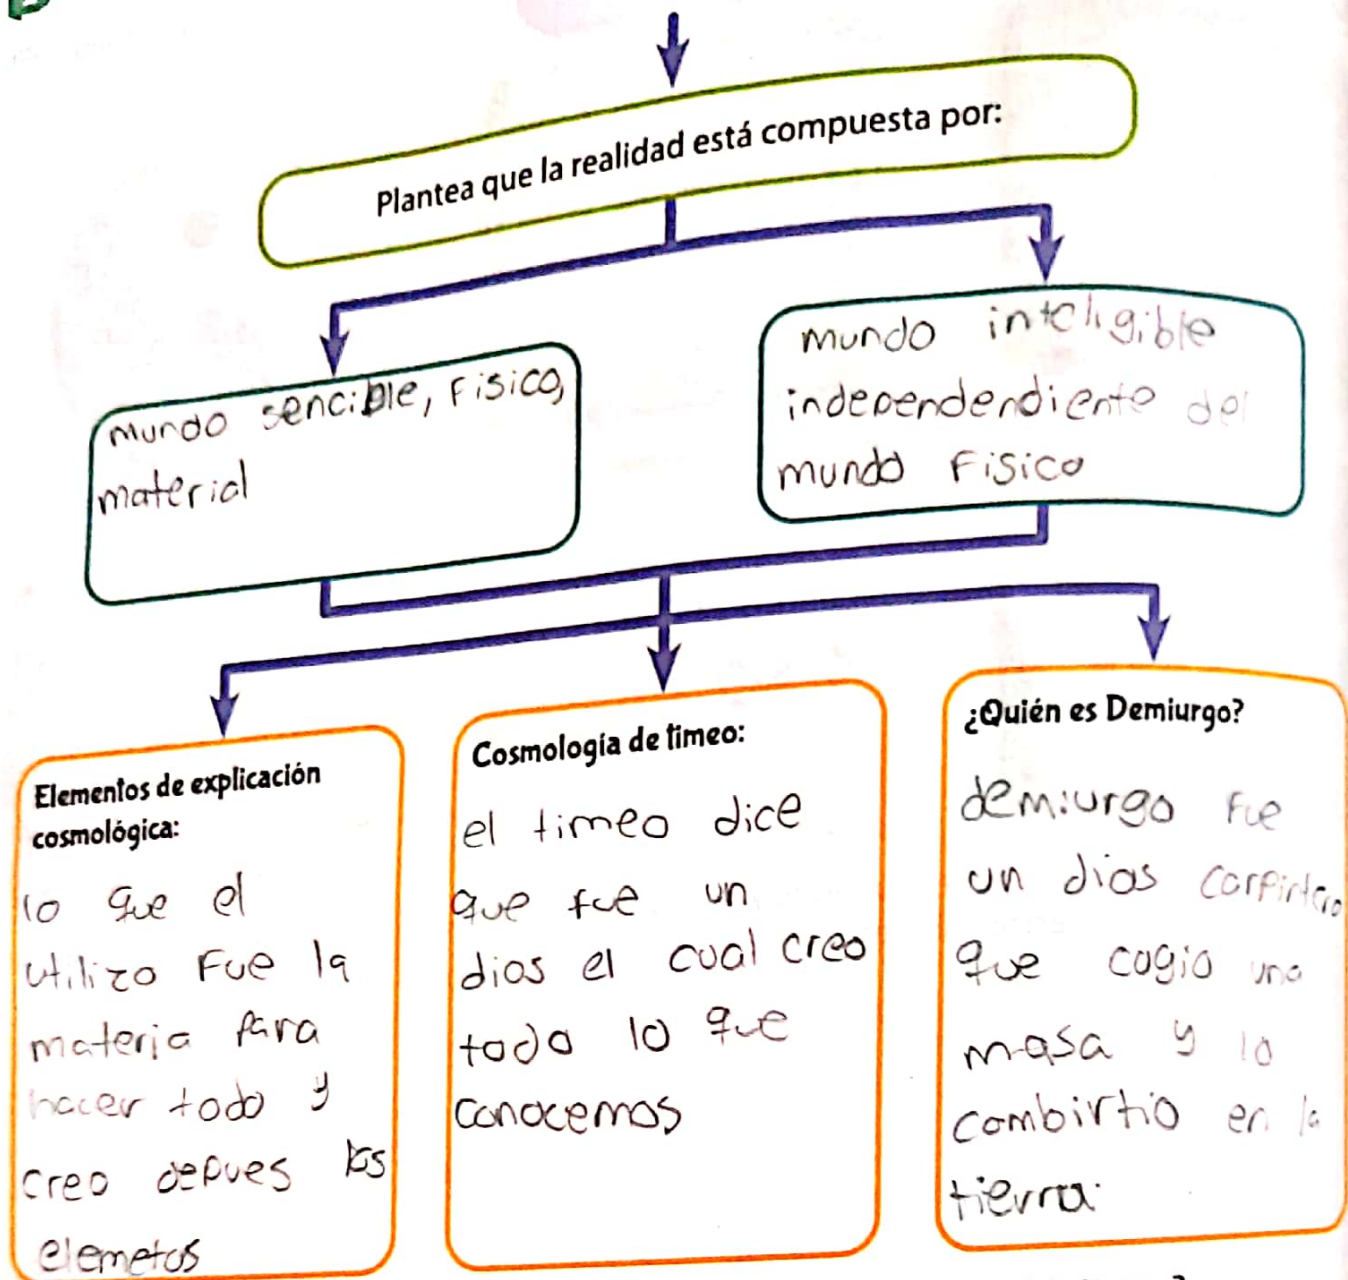 Plantea que la realidad está compuesta por:
mundo sencible, Fisico,
material
mundo inteligible
independendiente del
mundo Fisico
Elementos de explicación
cosmológica:
lo que el
utilizo Fue la
materia para
hacer todo y
creo depues los
elemetos
Cosmología de timeo:
el timeo dice
que fue un
dios el cual creo
todo lo que
conocemos
¿Quién es Demiurgo?
demiurgo Fue
un dios carpintero
que cogio una
masa y la
combirtio en la
tierra.